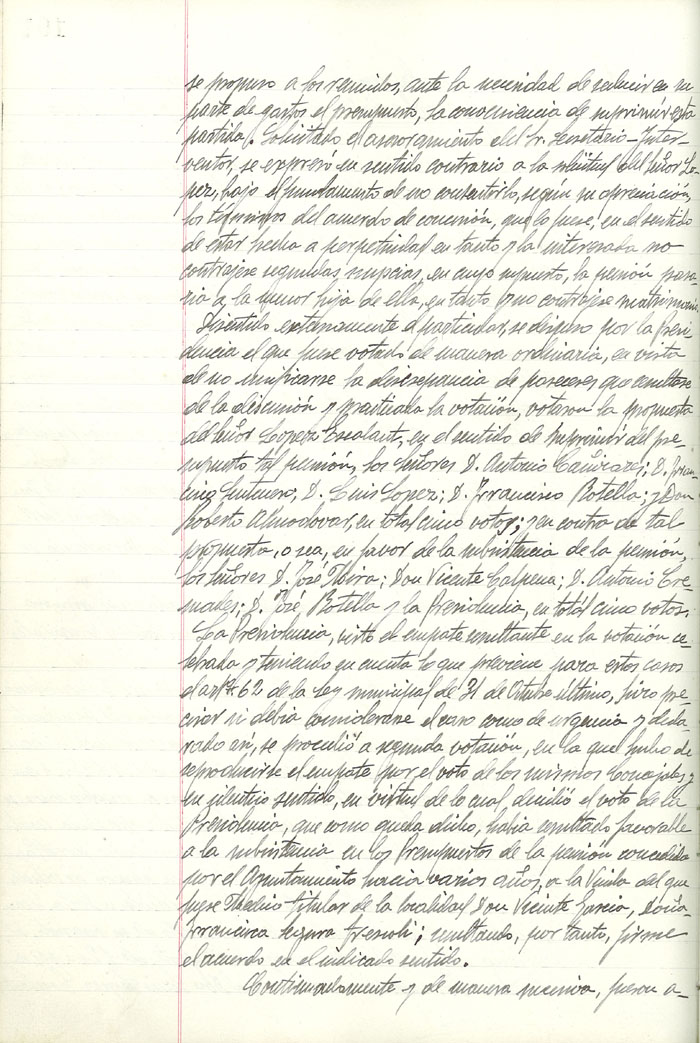 se propuso a los reunidos, ante la necesidad de reducir en su
parte de gastos el presupuesto, la conveniencia de suprimir esta
partida. Solicitado el asesoramiento del Sr. Secretario-Inter-
ventor, se expresó en sentido contrario a la solicitud del Señor Ló-
pez, bajo el fundamento de no consentirlo, según su apreciación,
los términos del acuerdo de concesión, que lo fuese, en el sentido
de estar hecha a perpetuidad en tanto y la interesada no
contrajese segundas nupcias, en cuyo supuesto, la pensión pasa-
ría a la menor hija de ella, en tanto y no contrajese matrimonio.
Discutido extensamente el particular, se dispuso por la Presi-
dencia el que fuese votado de manera ordinaria, en vista
de no unificarse la discrepancia de pareceres que resultase
de la discusión y practicada la votación, votaron la propuesta
del Señor Lopez Escalant, en el sentido de suprimir del pre-
supuesto tal pensión, los Señores D. Antonio Cañizares; D. Fran-
cisco D. Luis Lopez; D. Francisco Botella; y Don
Roberto Almodovar, en total cinco votos; y en contra de tal
propuesta, o sea, en favor de la subsistencia de la pensión,
los Señores D. José Don Vicente Calpena; D. Antonio Cre-
mades; D. José Botella y la Presidencia, en total cinco votos.
La Presidencia, visto el empate resultante en la votación ce-
lebrada y teniendo en cuenta lo que previene para estos casos
el artº. 62 de la Ley municipal de 31 de Octubre último, hizo pre-
cisar si debia considerarse el caso como de urgencia y decla-
rado así, se procedió a segunda votación, en la que hubo de
reproducirse el empate por el voto de los mismos Concejales y
en identico sentido, en virtud de lo cual, decidió el voto de la
Presidencia, que como queda dicho, habia resultado favorable
a la subsistencia en los Presupuestos de la pensión concedida
por el Ayuntamiento hacia varios años, a la Viuda del que
fuese Medico titular de la localidad Don Vicente Garcia, Doña
Francisca Segura resultando, por tanto, firme
el acuerdo en el indicado sentido.
Continuadamente y de manera sucesiva, fueron a-